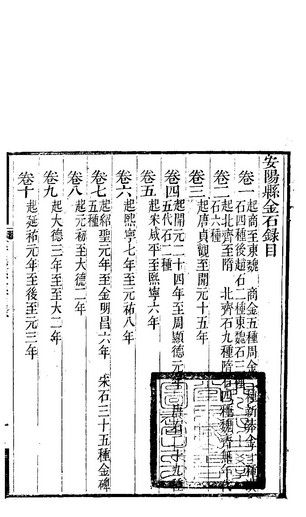 安陽縣金石錄目
卷一
起商至東魏 商金五種周金
石四種後趙石一種東魏石
卷二
起北齊至隋 北齊石九種隋石四種魏齊無年
石六種
卷三
起唐貞觀至開元十五年
卷四
起開元二十四年至周顯德元年
五代石二種
卷五
起宋咸平至熙寧六年
卷六
起熙寧七年至元祐八年
卷七
起紹聖元年至金明昌六年 宋石三十五種金碑
五種
卷八
起元初至大德二年
卷九
起大德三年至至大二年
卷十
起延祐元年至後至元三年